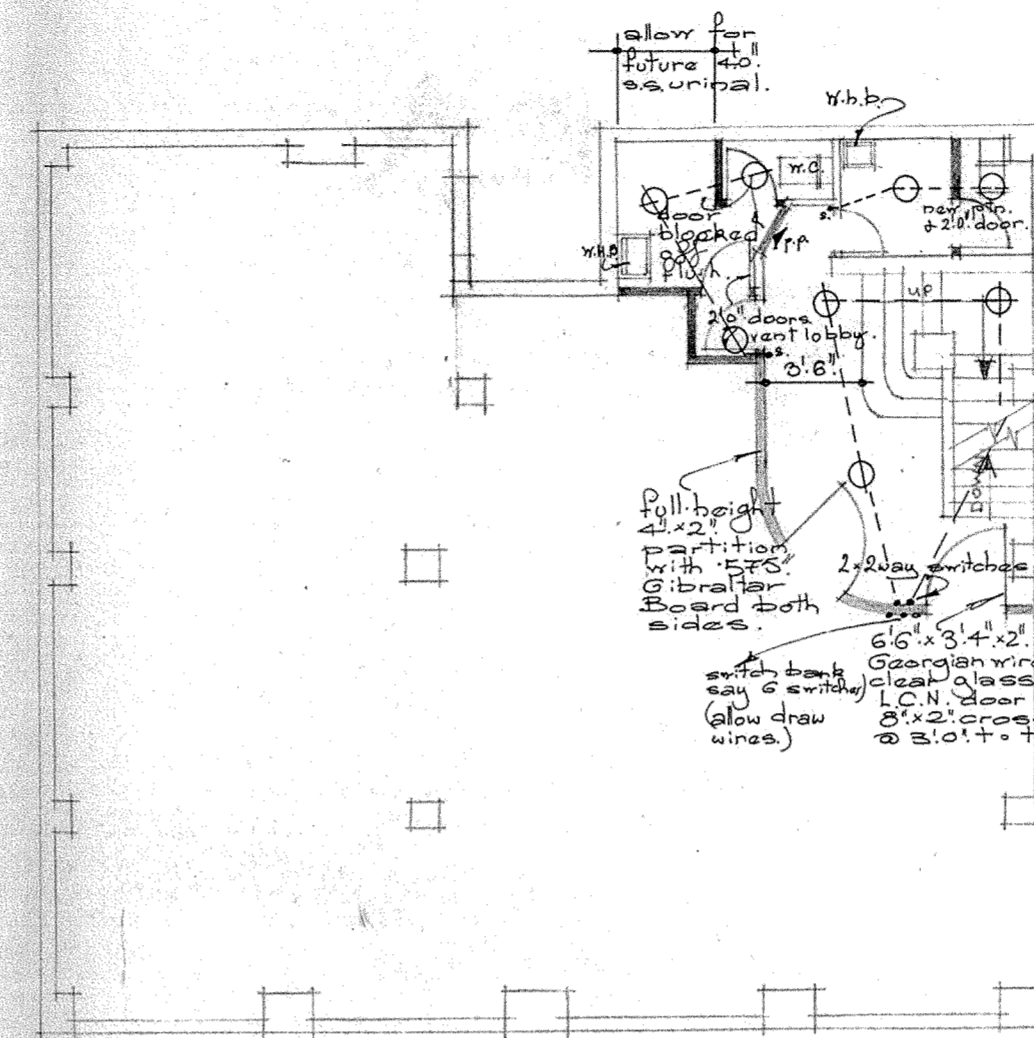 allow for
future 4'.0".
s.s. urinal.
W.h.b.
W.C.
door
blocked
off
flush.
W.H.B
s.
P.P.
new ptn.
& 2'.0" door.
2'.0" doors
vent lobby.
s.
3'.6".
up
Down
full height
4".x2".
partition
with .575".
Gibraltar
Board both
sides.
2x2way switches
switch bank
say 6 switches
(allow draw
wires.)
6'.6".x3'.4".x2".
Georgian wire
clear glass
L.C.N. door
8".x2". cros
@ 3'.0". t